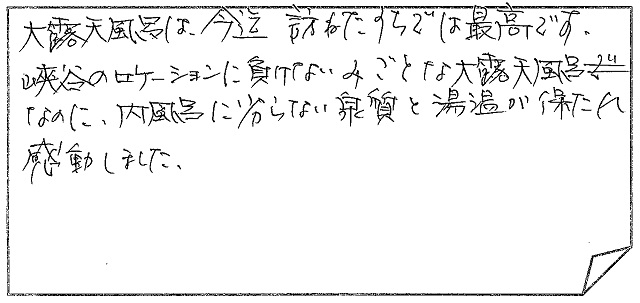 大露天風呂は、今迄 訪ねたうちでは最高です。
峡谷のロケーションに負けないみごとな大露天風呂で
なのに、内風呂に劣らない泉質と湯温が保たれ
感動しました。